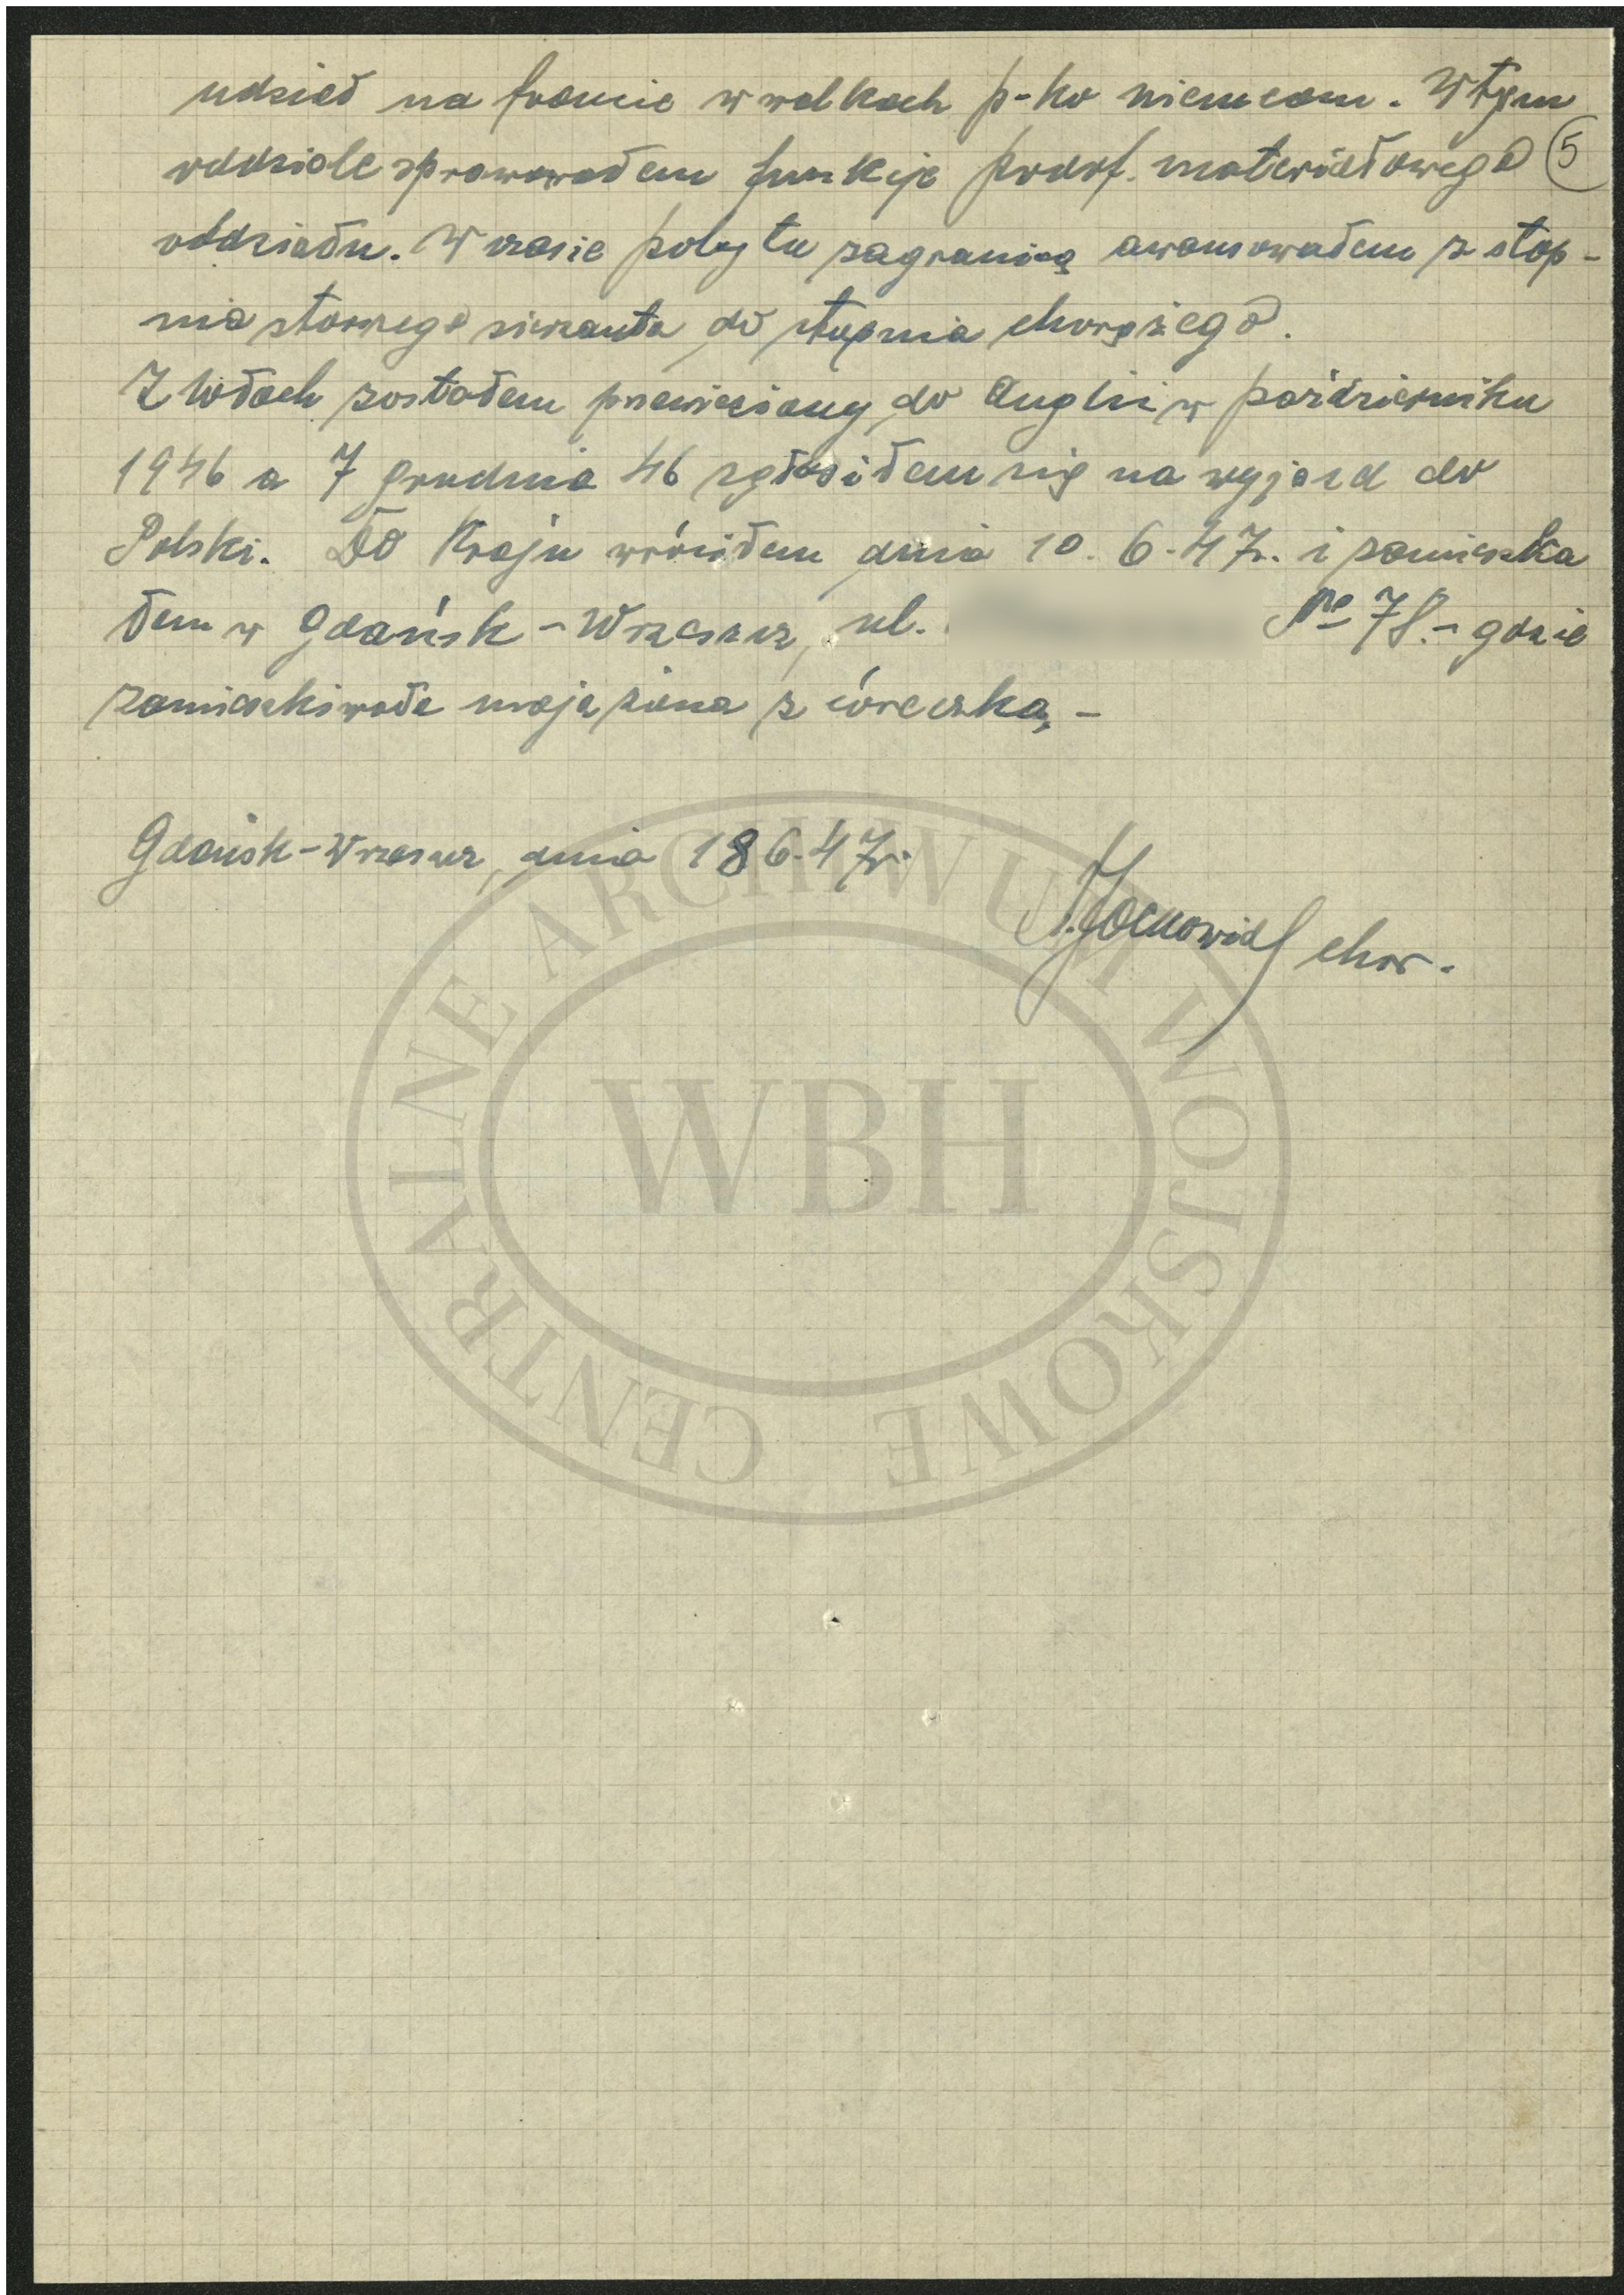 udział na froncie w walkach p-ko niemcom. W tym
oddziale sprawowałem funkcje podof. materiałowego 5
oddziału. W czasie pobytu zagranicą awansowałem z stop-
nia starszego sierżanta do stopnia chorążego.
Z Włoch zostałem przewieziony do Anglii w październiku
1946 a 7 grudnia 46 zgłosiłem się na wyjazd do
Polski. Do Kraju wróciłem dnia 10. 6. 47r. i zamieszka
łem w Gdańsk - Wrzeszcz, ul. No 78. - gdzie
zamieszkiwała moja żona z córeczką, -
Gdańsk - Wrzeszcz, dnia 18 6. 47r.
chor.
CENTRALNE ARCHIWUM WOJSKOWE
WBH